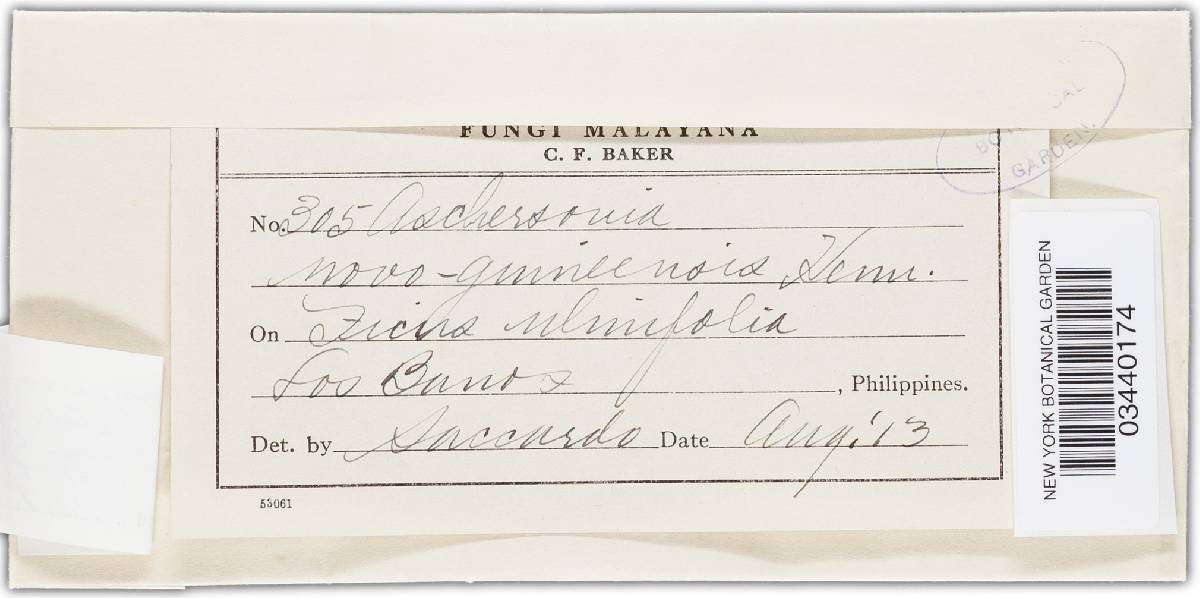 FUNGI MALAYANA
C. F. BAKER
No. 305 Aschersonia
novo-guineensis Henn.
On Ficus ulmifolia
Los Banos, Philippines.
Det. by Saccardo Date Aug. '13
53061
BOTANICAL
GARDEN.
NEW YORK BOTANICAL GARDEN
03440174